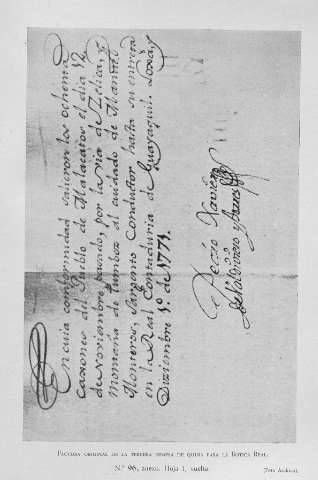 En cuia conformidad salieron los ochenta
caxones del Pueblo de Malacatos el dia 12
de Noviembre pasado, por la via de Zelica, y
montaña de Tumbez al cuidado de Manuel
Monteros, Sargento conductor hasta su entrega
en la Real Contaduria de Guayaquil. Loxa, y
Diziembre 1º. de 1773.
Pedro Xavier
de Valdivieso y Torres
FACTURA ORIGINAL DE LA TERCERA REMESA DE QUINA PARA LA BOTICA REAL.
N.º 96, anexo. Hoja 1, vuelta.
(Foto Archivo).